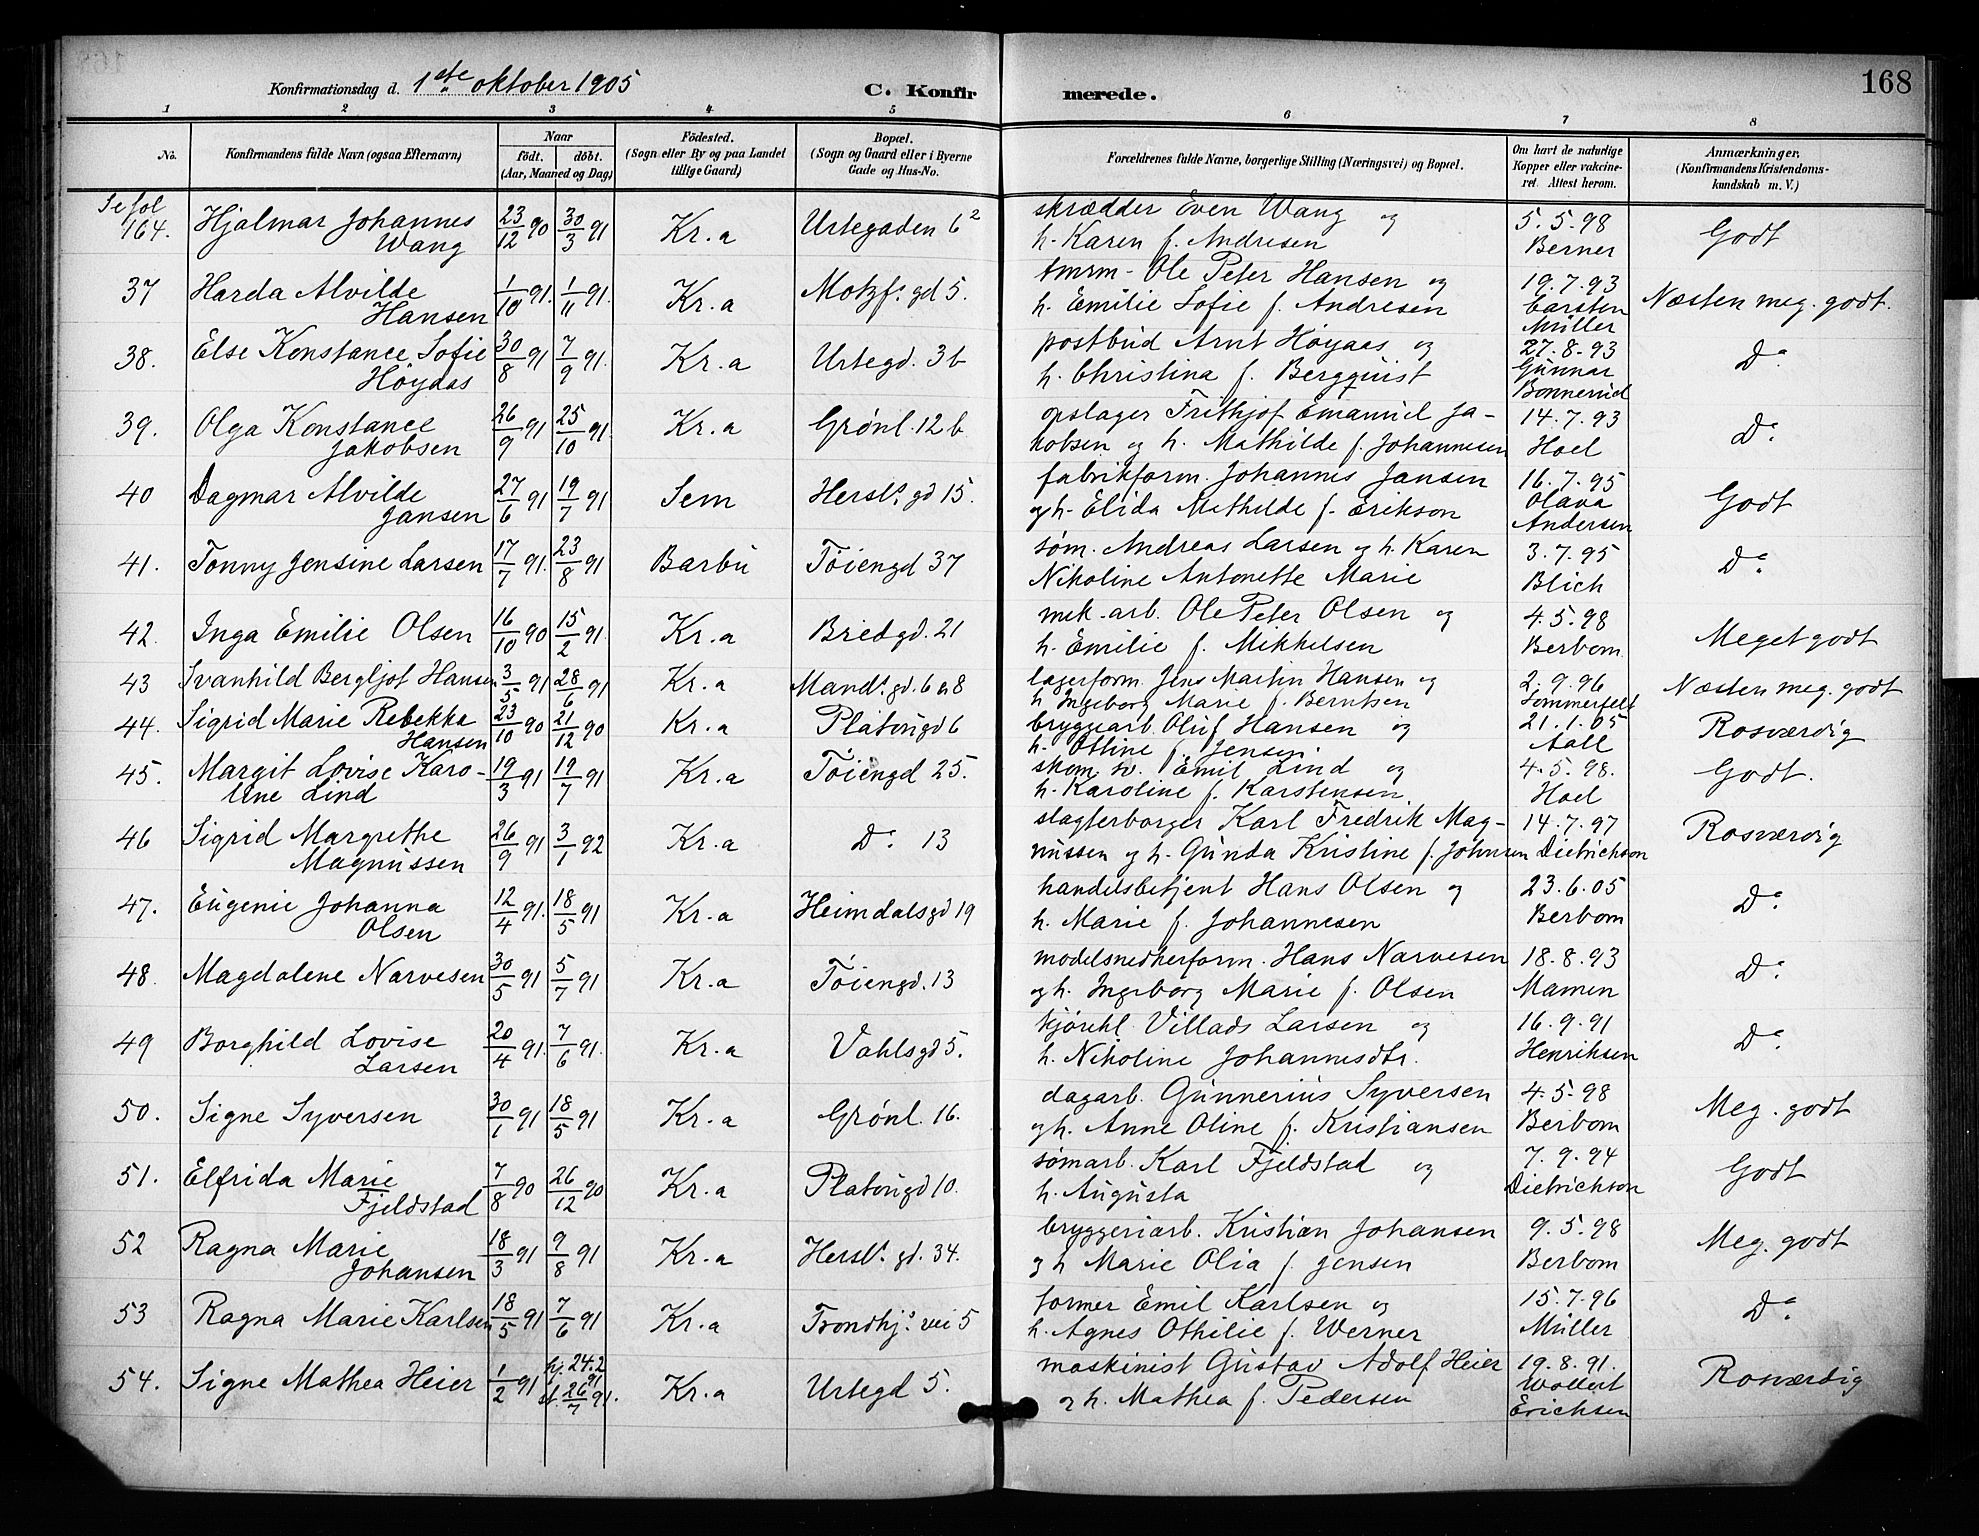 168
Konfirmationsdag d. 1ste oktober 1905
C. Konfirmerede.
1 2 3 4 5 6 7 8
No. Konfirmandens fulde Navn (ogsaa Efternavn) Naar födt. döbt. (Aar, Maaned og Dag) Födested. (Sogn eller By og paa Landet tillige Gaard) Bopæl. (Sogn og Gaard eller i Byerne Gade og Hus-No. Forældrenes fulde Navne, borgerlige Stilling (Næringsvei) og Bopæl. Om havt de naturlige Kopper eller vakcineret. Attest herom. Anmærkninger, (Konfirmandens Kristendomskundskab m. V.)
Se fol 164. Hjalmar Johannes Wang 23/12 90 30/3 91 Kr.a Urtegaden 6² skrædder Even Wang og h. Karen f. Andresen 5.5.98 Berner Godt
37 Harda Alvilde Hansen 1/10 91. 1/11 91. Kr.a Motzf.s gd 5. tmrm. Ole Peter Hansen og h. Emilie Sofie f. Andresen 19.7.93 Carsten Müller Næsten meg. godt.
38. Else Konstance Sofie Höyaas 30/8 91 7/9 91. Kr.a Urtegd. 3b postbud Arnt Höyaas og h. Christina f. Bergquist 27.8.93 Gunnar Bonnerud Do
39. Olga Konstance Jakobsen 26/9 91 25/10 91. Kr.a Grønl. 12b opslager Frithjof Emanuel Jakobsen og h. Mathilde f. Johannesen 14.7.93 Hoel Do
40 Dagmar Alvilde Jansen 27/6 91 19/7 91 Sem Hersl.s gd 15. fabrikform. Johannes Jansen og h. Elida Mathilde f. Erikson 16.7.95 Olava Andersen Godt
41. Tonny Jensine Larsen 17/7 91. 23/8 91 Barbu Töiengd 37 söm. Andreas Larsen og h. Karen Nikoline Antonette Marie 3.7.95 Blich Do
42. Inga Emilie Olsen 16/10 90 15/2 91. Kr.a Bredgd. 21 mek. arb. Ole Peter Olsen og h. Emilie f. Mikkelsen 4.5.98 Berbom Meget godt
43 Svanhild Bergljot Hansen 3/5 91 28/6 91 Kr.a Mand.s gd. 6 a 8 lagerform. Jens Martin Hansen og h. Ingeborg Marie f. Berntsen 2.9.96 Sommerfelt Næsten meg. godt
44. Sigrid Marie Rebekka Hansen 23/10 90 21/12 90 Kr.a Platougd 6 bryggearb. Oluf Hansen og h. Othine f. Jensen. 21.1.05 Aall Rosværdig
45. Margit Lovise Karoline Lind 19/3 91 19/7 91 Kr.a Töiengd 25. skom. sv. Emil Lind og h. Karoline f. Karstensen 4.5.98. Hoel Godt.
46 Sigrid Margrethe Magnussen 26/9 91 3/1 92 Kr.a Do 13 slagterborger Karl Fredrik Magnussen og h. Gunda Kristine f. Johnsen 14.7.97 Dietrichson Rosværdig
47. Eugenie Johanna Olsen 12/4 91. 18/5 91 Kr.a Heimdalsgd 19 handelsbetjent Hans Olsen og h. Marie f. Johannesen 23.6.05 Berbom Do
48. Magdalene Narvesen 30/5 91 5/7 91 Kr.a Töiengd. 13 modelsnedkerform. Hans Narvesen og h. Ingeborg Marie f. Olsen 18.8.93 Mamen Do
49 Borghild Lovise Larsen 20/4 91. 7/6 91. Kr.a Vahlsgd 5. kjörekl. Villads Larsen og h. Nikoline Johannesdtr. 16.9.91 Henriksen Do
50. Signe Syversen 30/1 91 18/5 91 Kr.a Grönl. 16. dagarb. Gunnerius Syversen og h. Anne Oline f. Kristiansen 4.5.98 Berbom Meg. godt
51. Elfrida Marie Fjeldstad 7/8 90 26/12 90 Kr.a Platougd 10. sömarb. Karl Fjeldstad og h. Augusta 7.9.94 Dietrichson Godt
52 Ragna Marie Johansen 18/3 91 9/8 91 Kr.a Hersl.s gd. 34. bryggeriarb. Kristian Johansen og h Marie Olia f. Jensen 9.5.98 Berbom Meg. godt
53 Ragna Marie Karlsen 18/5 91 7/6 91 Kr.a Trondhj.s vei 5 former Emil Karlsen og h. Agnes Othilie f. Werner 15.7.96 Müller Do
54. Signe Mathea Heier 1/2 91 hj. 24.2 91 st. 26/7 91. Kr.a Urtegd 5. maskinist Gustav Adolf Heier og h. Mathea f. Pedersen 19.8.91. Wollert Erichsen Rosværdig